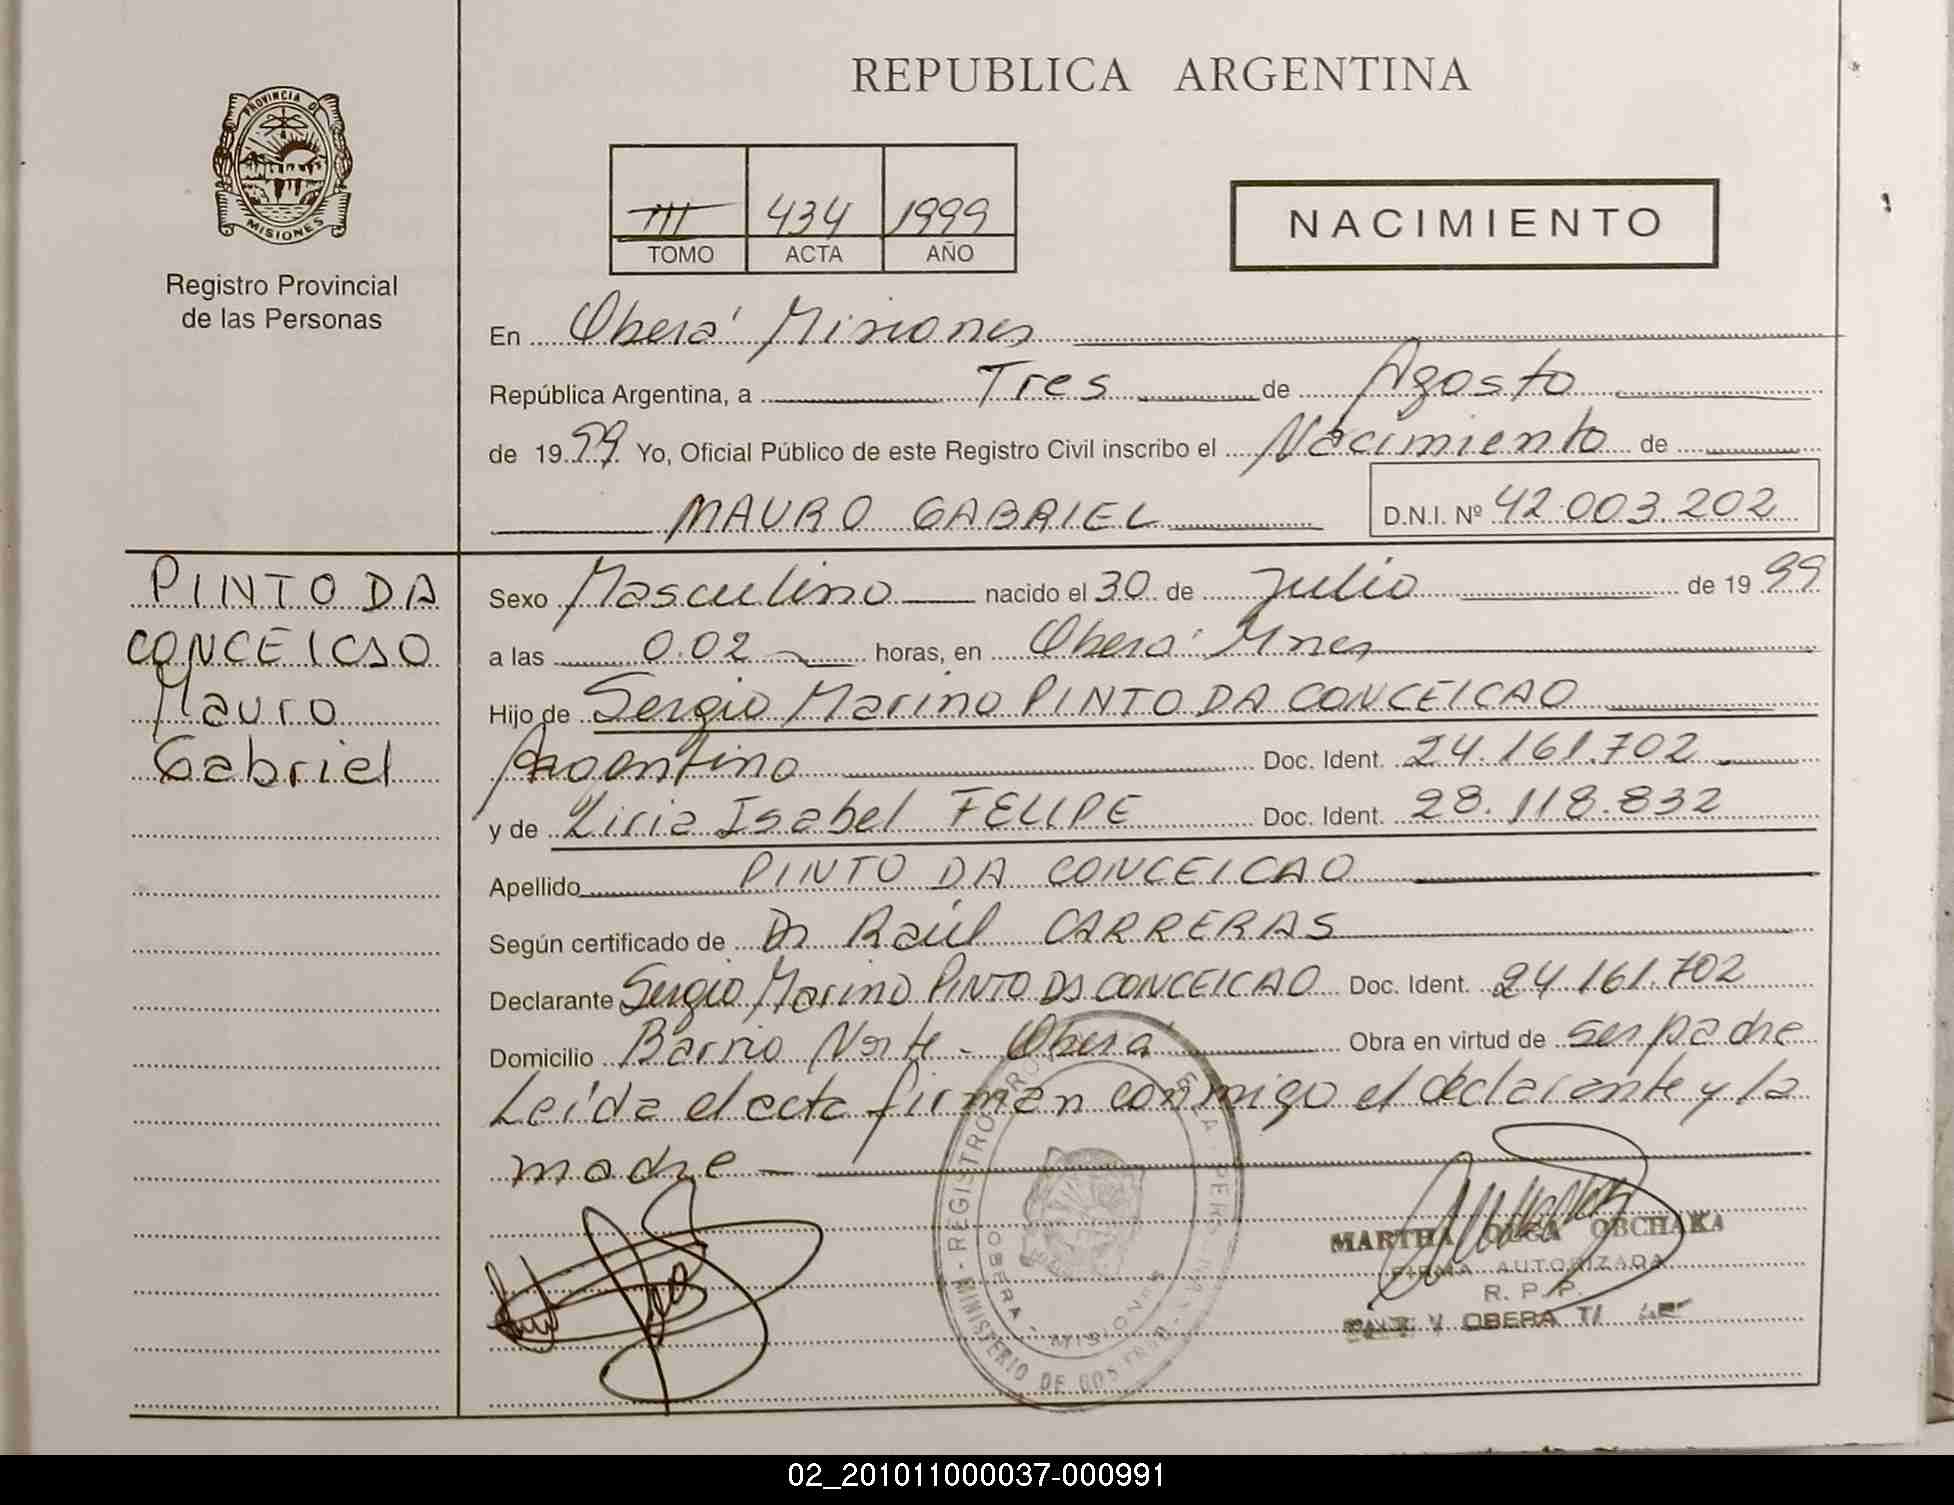 REPUBLICA ARGENTINA
PROVINCIA DE
MISIONES
Registro Provincial
de las Personas
III 434 1999
TOMO ACTA AÑO
NACIMIENTO
En Oberá Misiones
República Argentina, a Tres de Agosto
de 1999 Yo, Oficial Público de este Registro Civil inscribo el Nacimiento de
MAURO GABRIEL D.N.I. Nº 42.003.202
PINTO DA
CONCEICAO
Mauro
Gabriel
Sexo Masculino nacido el 30 de Julio de 1999
a las 0.02 horas, en Oberá Mnes
Hijo de Sergio Marino PINTO DA CONCEICAO
Argentino Doc. Ident. 24.161.702
y de Liria Isabel FELIPE Doc. Ident. 28.118.832
Apellido PINTO DA CONCEICAO
Según certificado de Dr Raúl CARRERAS
Declarante Sergio Marino PINTO DA CONCEICAO Doc. Ident. 24 161.702
Domicilio Barrio Norte - Oberá Obra en virtud de ser padre
Leída el acta firman conmigo el declarante y la
madre
MARTHA OLGA OBCHAKA
FIRMA AUTORIZADA
R. P. P.
OBERA
REGISTRO
OBERA - MISIONES
MINISTERIO DE
02_201011000037-000991